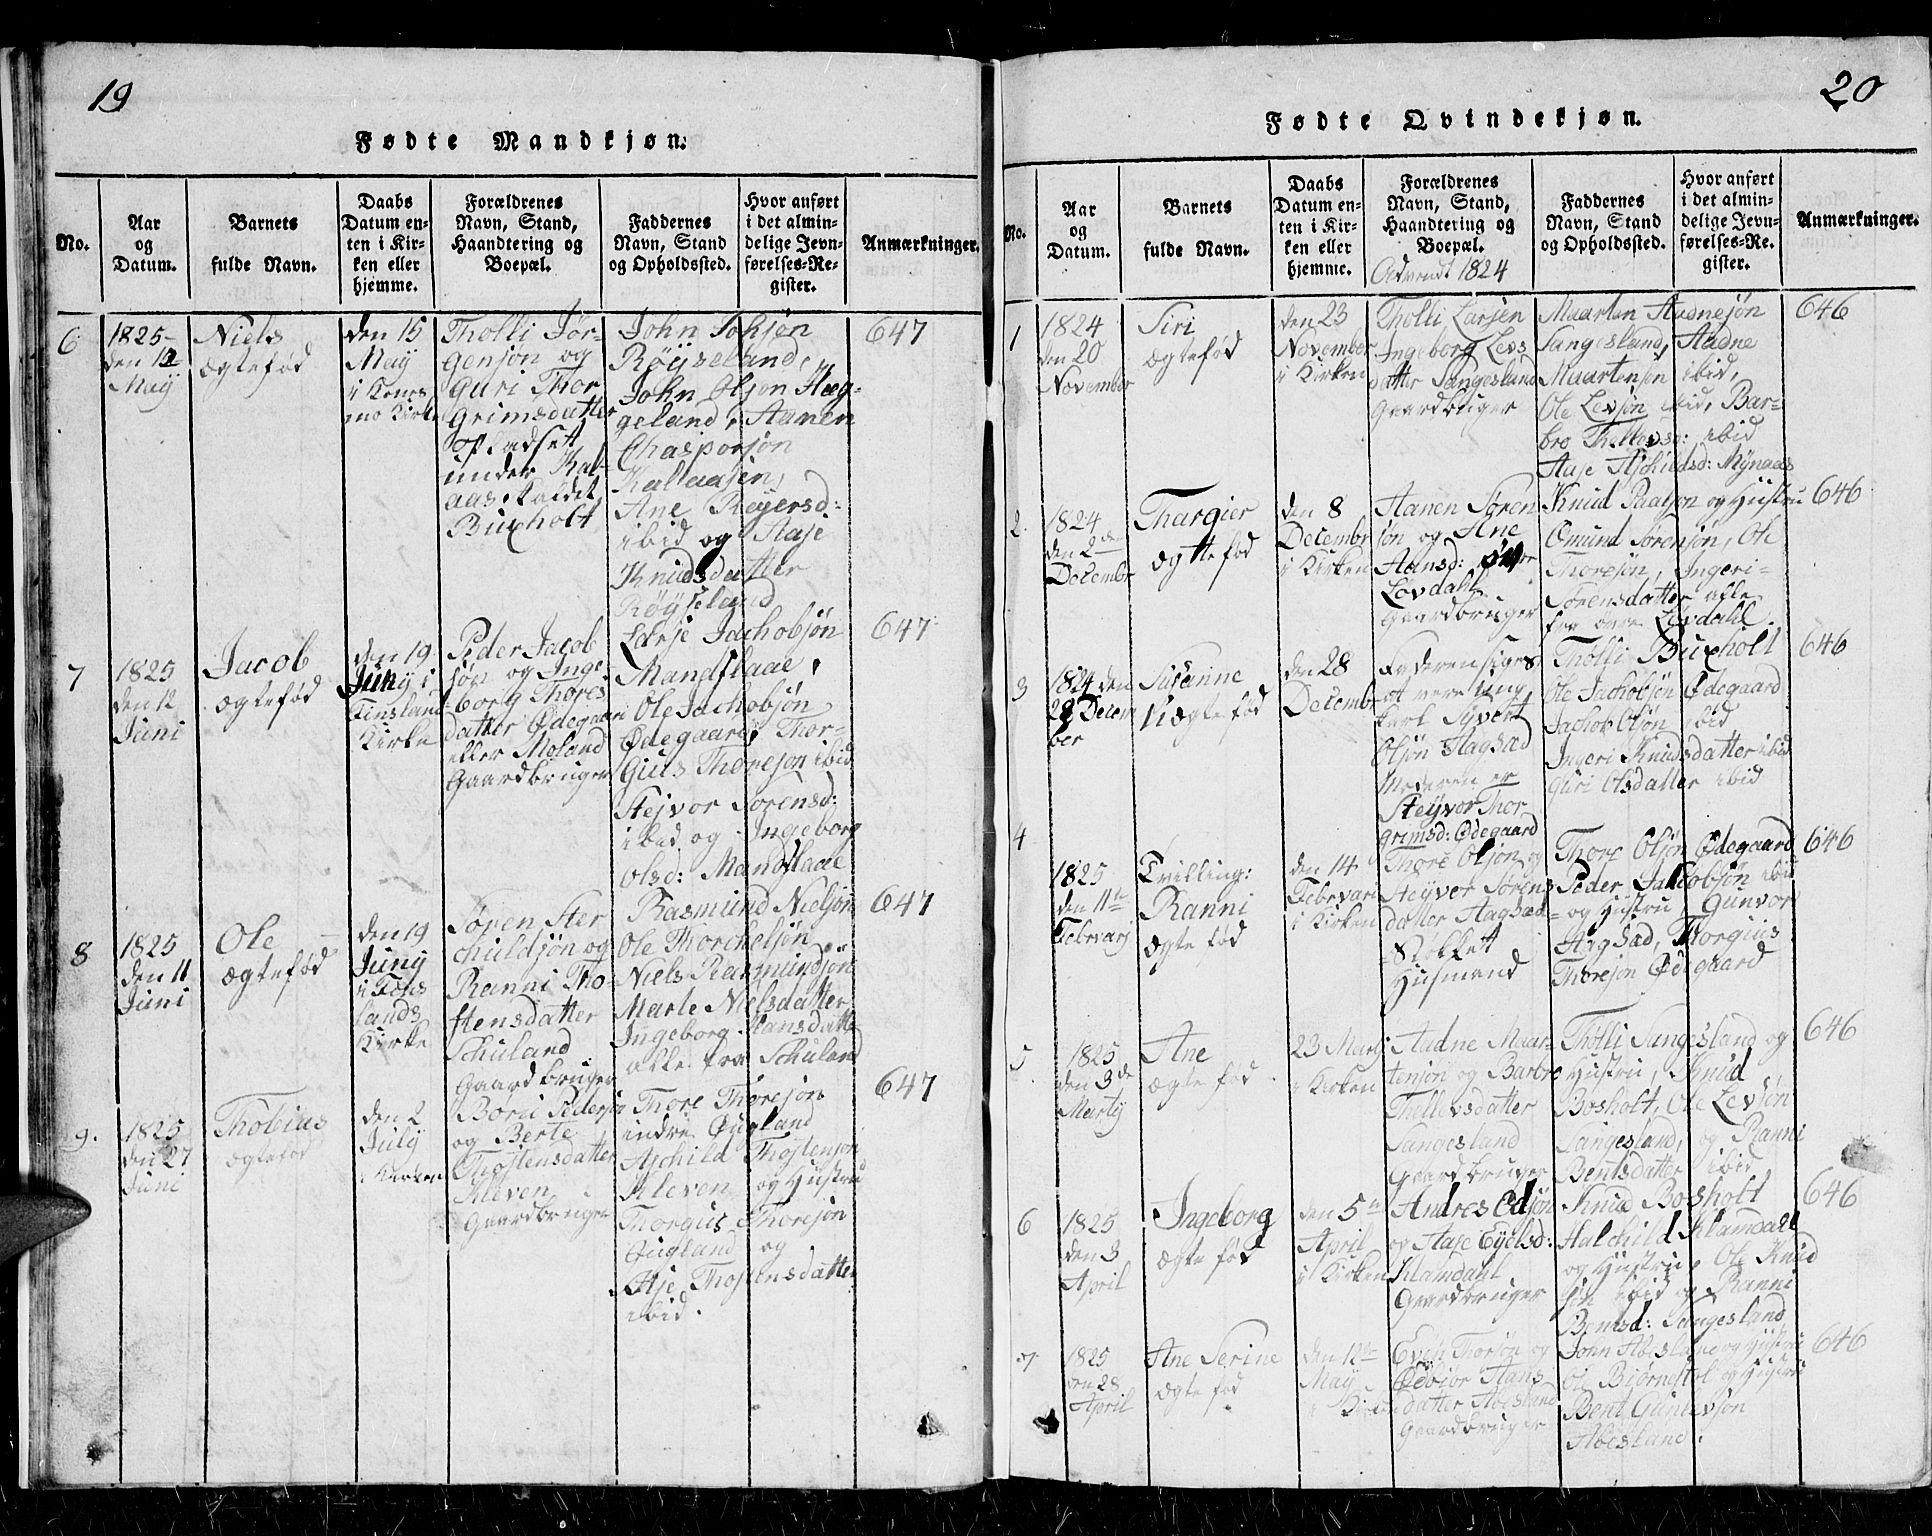 19
Fødte Mandkjøn.
No.
Aar
og
Datum.
Barnets
fulde Navn.
Daabs
Datum en-
ten i Kir-
ken eller
hjemme.
Forældrenes
Navn, Stand,
Haandtering og
Boepæl.
Faddernes
Navn, Stand
og Opholdssted.
Hvor anført
i det almin-
delige Jevn-
førelses-Re-
gister.
Anmærkninger.
6
1825
den 12
May
Niels
ægtefød
den 15
May
i
Kirke
Tholli Jør-
gensøn og
Guri Thor
Grimsdatter
Pladset
under Kal-
aas kaldet
Buxholt
John Johsøn
Röyseland,
John Olsøn Hæg-
geland, Aanen
Chasparsøn
Kallaasen,
Ane Reyersd:
ibid og Aase
Knudsdatter
Röyseland
647
7
1825
den 12
Juni
Jacob
ægtefød
den 19
Juny i
Finsland
Kirke
Peder Jacob
søn og Inge-
borg Thores
datter Ødegaard
eller Moland
Gaardbruger
Larse Jachobsøn
Mandflaae,
Ole Jachobsøn
Ødegaard, Thor-
Gius Thoresøn ibid
Stejvor Sørensd:
ibid og Ingeborg
Olsd: Mandflaae
647
8
1825
den 11
Juni
Ole
ægtefød
den 19
Juny
i Fins
lands
Kirke
Søren Ster
chuldsøn og
Ranni Tho-
stensdatter
Schuland
Gaardbruger
Rasmund Nielsøn
Ole Thorchelsøn
Niels Rasmundsøn
Marte Nielsdatter
Ingeborg Hansdatter
alle fra Schuland
647
9.
1825
den 27
Juni
Thobias
ægtefød
den 2
July
i Kirken
Børu Pedersøn
og Berte
Thostensdatter
Kleven
Gaardbruger
Thore Thoresøn
indre Øugland
Aschild Thostensøn
Kleven og Hustru
Thorgius Thoresøn
Øugland og
Aase Thostensdatter
ibid.
647
20
Fødte Qvindekjøn.
No.
Aar
og
Datum.
Barnets
fulde Navn.
Daabs
Datum en-
ten i Kir-
ken eller
hjemme.
Forældrenes
Navn, Stand,
Haandtering og
Boepæl.
Advendt 1824
Faddernes
Navn, Stand
og Opholdssted.
Hvor anført
i det almin-
delige Jevn-
førelses-Re-
gister.
Anmærkninger.
1
1824
den 20
November
Siri
ægtefød
den 23
November
i Kirken
Tholli Larsen
Ingeborg Levs
datter Sangesland
Gaardbruger
Maarten Aadnesøn
Sangesland, Aadne
Maartensøn ibid,
Ole Levsøn ibid, Bar-
bro Thellevsd: ibid
Aase Aschildsd: Mynaas
646
2.
1824
den 2den
Decembr
Thargier
ægtefød
den 8
Decembr
i Kirken
Aanen Søren
søn og Ane
Aansd:
Lövdahl
Gaardbruger
Knud Paalsøn og Hustru
Omund Sørensøn, Ole
Thoresøn, Ingeri-
Sørensdatter alle
fra øvre Lövdahl.
646
3
1824 den
28 Decem
ber
Susanne
Uægtefød
den 28
Decembr
Faderen siges
at være ung
karl Syvert
Olsøn Hagsæd
Moderen er
Steyvor Thor
grimsd: Ødegaard
Tholli Buxholt
Ole Jachobsøn Ødegaard
Jachob Olsøn ibid
Ingeri Knudsdatter ibid
Guri Olsdatter ibid
646
4
1825
den 11te
Februarj
Tvilling:
Ranni
ægtefød
den 14
Februari
i Kirken
Thore Olsøn og
Steyvor Sørens
datter Aagsæd-
Stokket
Husmand
Thore Olsøn Ødegaard
Peder Jakobsøn ibid
og Hustru, Gunvor
Aagsæd, Thorgius
Thoresøn Ødegaard
646
5
1825
den 3de
Martij
Ane
ægtefød
23 Martj
i Kirken
Aadne Maar-
tensøn og Barbro
Thellevsdatter
Sangesland
Gaardbruger
Tholli Sangesland og
Hustru, Knud
Bosholt, Ole Levsøn
Sangesland, og Ranni
Bentsdatter ibid
646
6
1825
den 3
April
Ingeborg
ægtefød
den 5te
April
i Kirken
Andres Edsøn
og Aase Eyelsd:
Klamdahl
Gaardbruger
Knud Bosholt
Halchild Klamdahl
og Hustru, Ole Knud
søn ibid og Ranni
Bentsd: Sangesland
646
7
1825
den 28
April
Ane Serine
ægtefød
den 12te
May
i Kirken
Even Thorsøn og
Ødbiør Hans
datter Abesland
Gaardbruger
John Abesland og Hustru
Ole Biørnestøl og Hustru
Bent Gunlevsøn
Abesland.
646